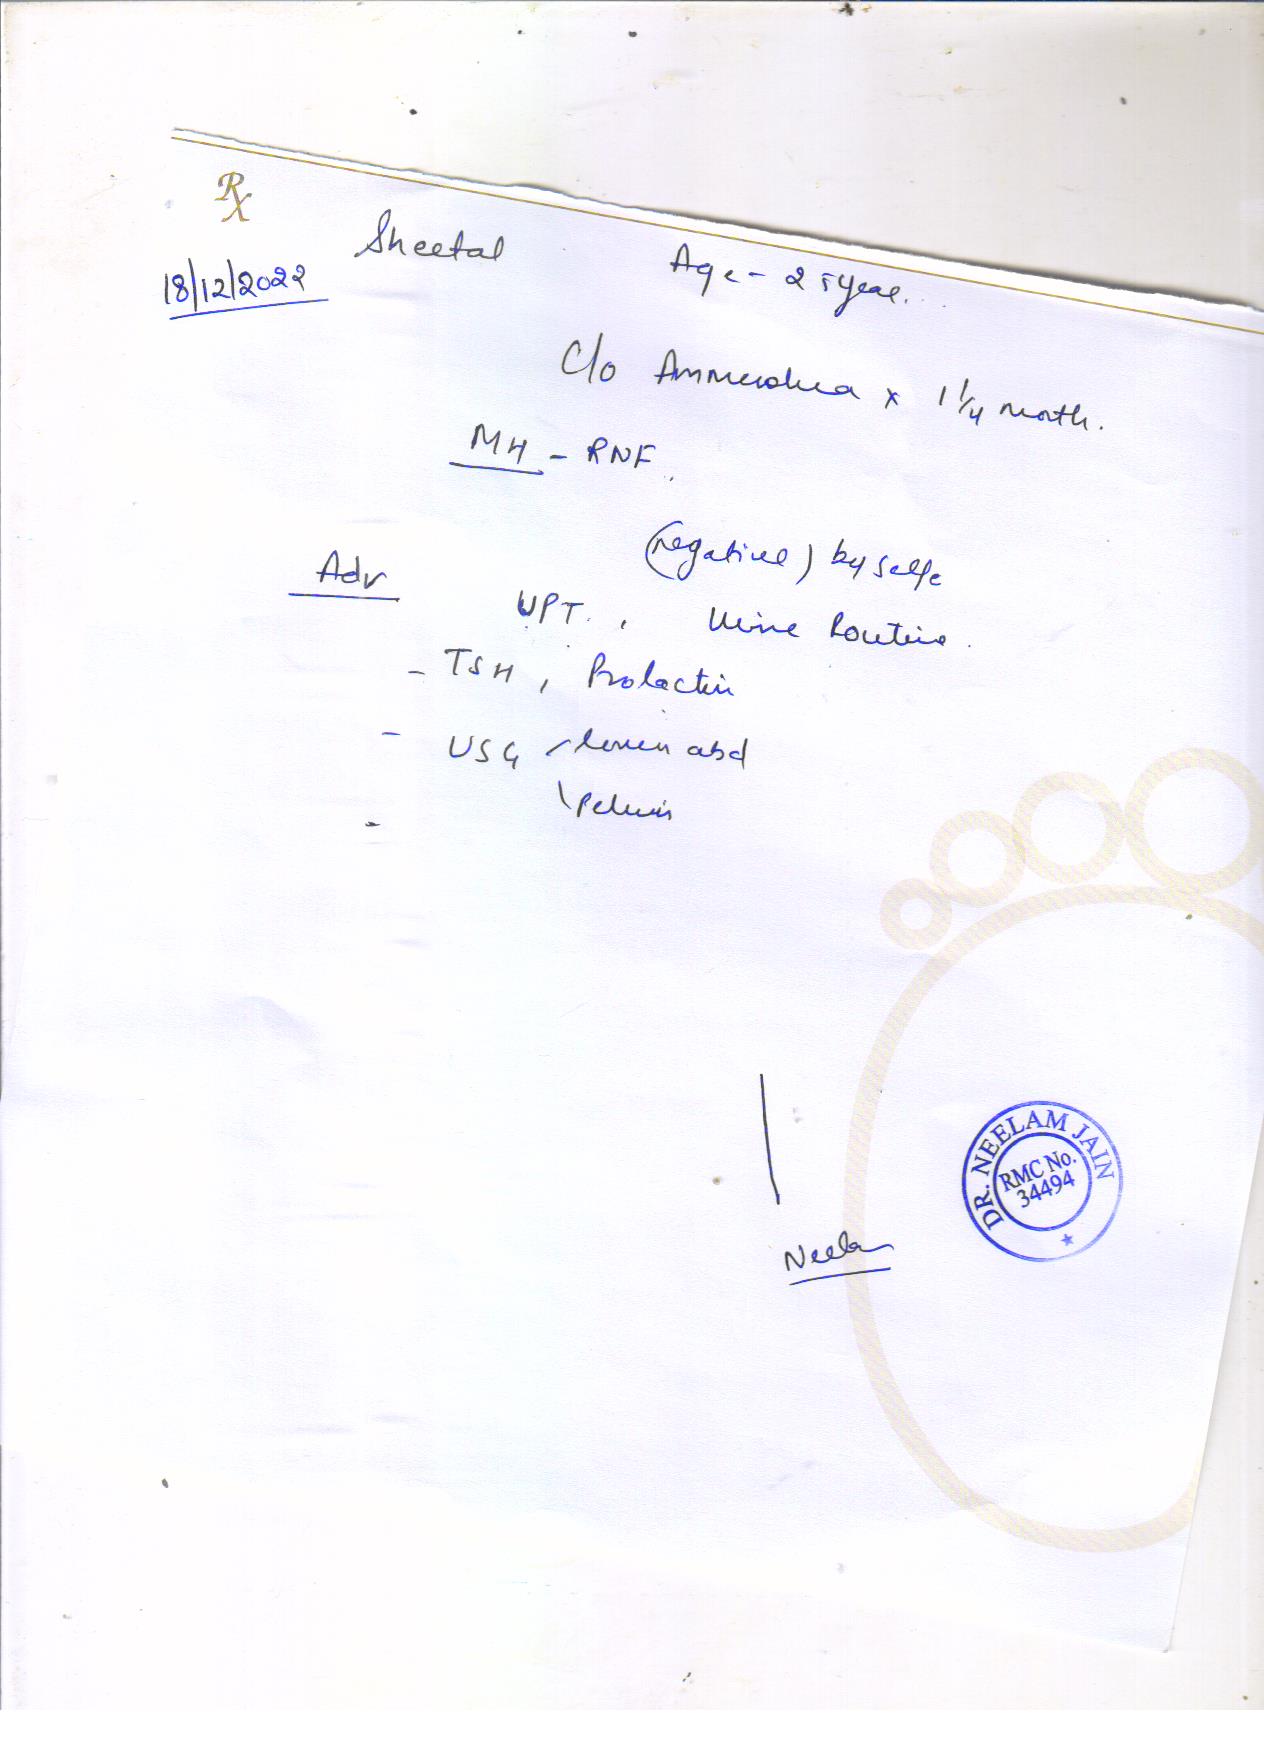 Rx
Sheetal Age - 25 year.
18/12/2022
C/o Ammerohea x 1 1/4 month.
MH - RNF
(negative) by selfe
Adv
UPT. , Urine Routine.
- TSH , Prolactin
- USG / lower abd
\ Pelvis
-
DR. NEELAM JAIN
RMC No.
34494
Neelam